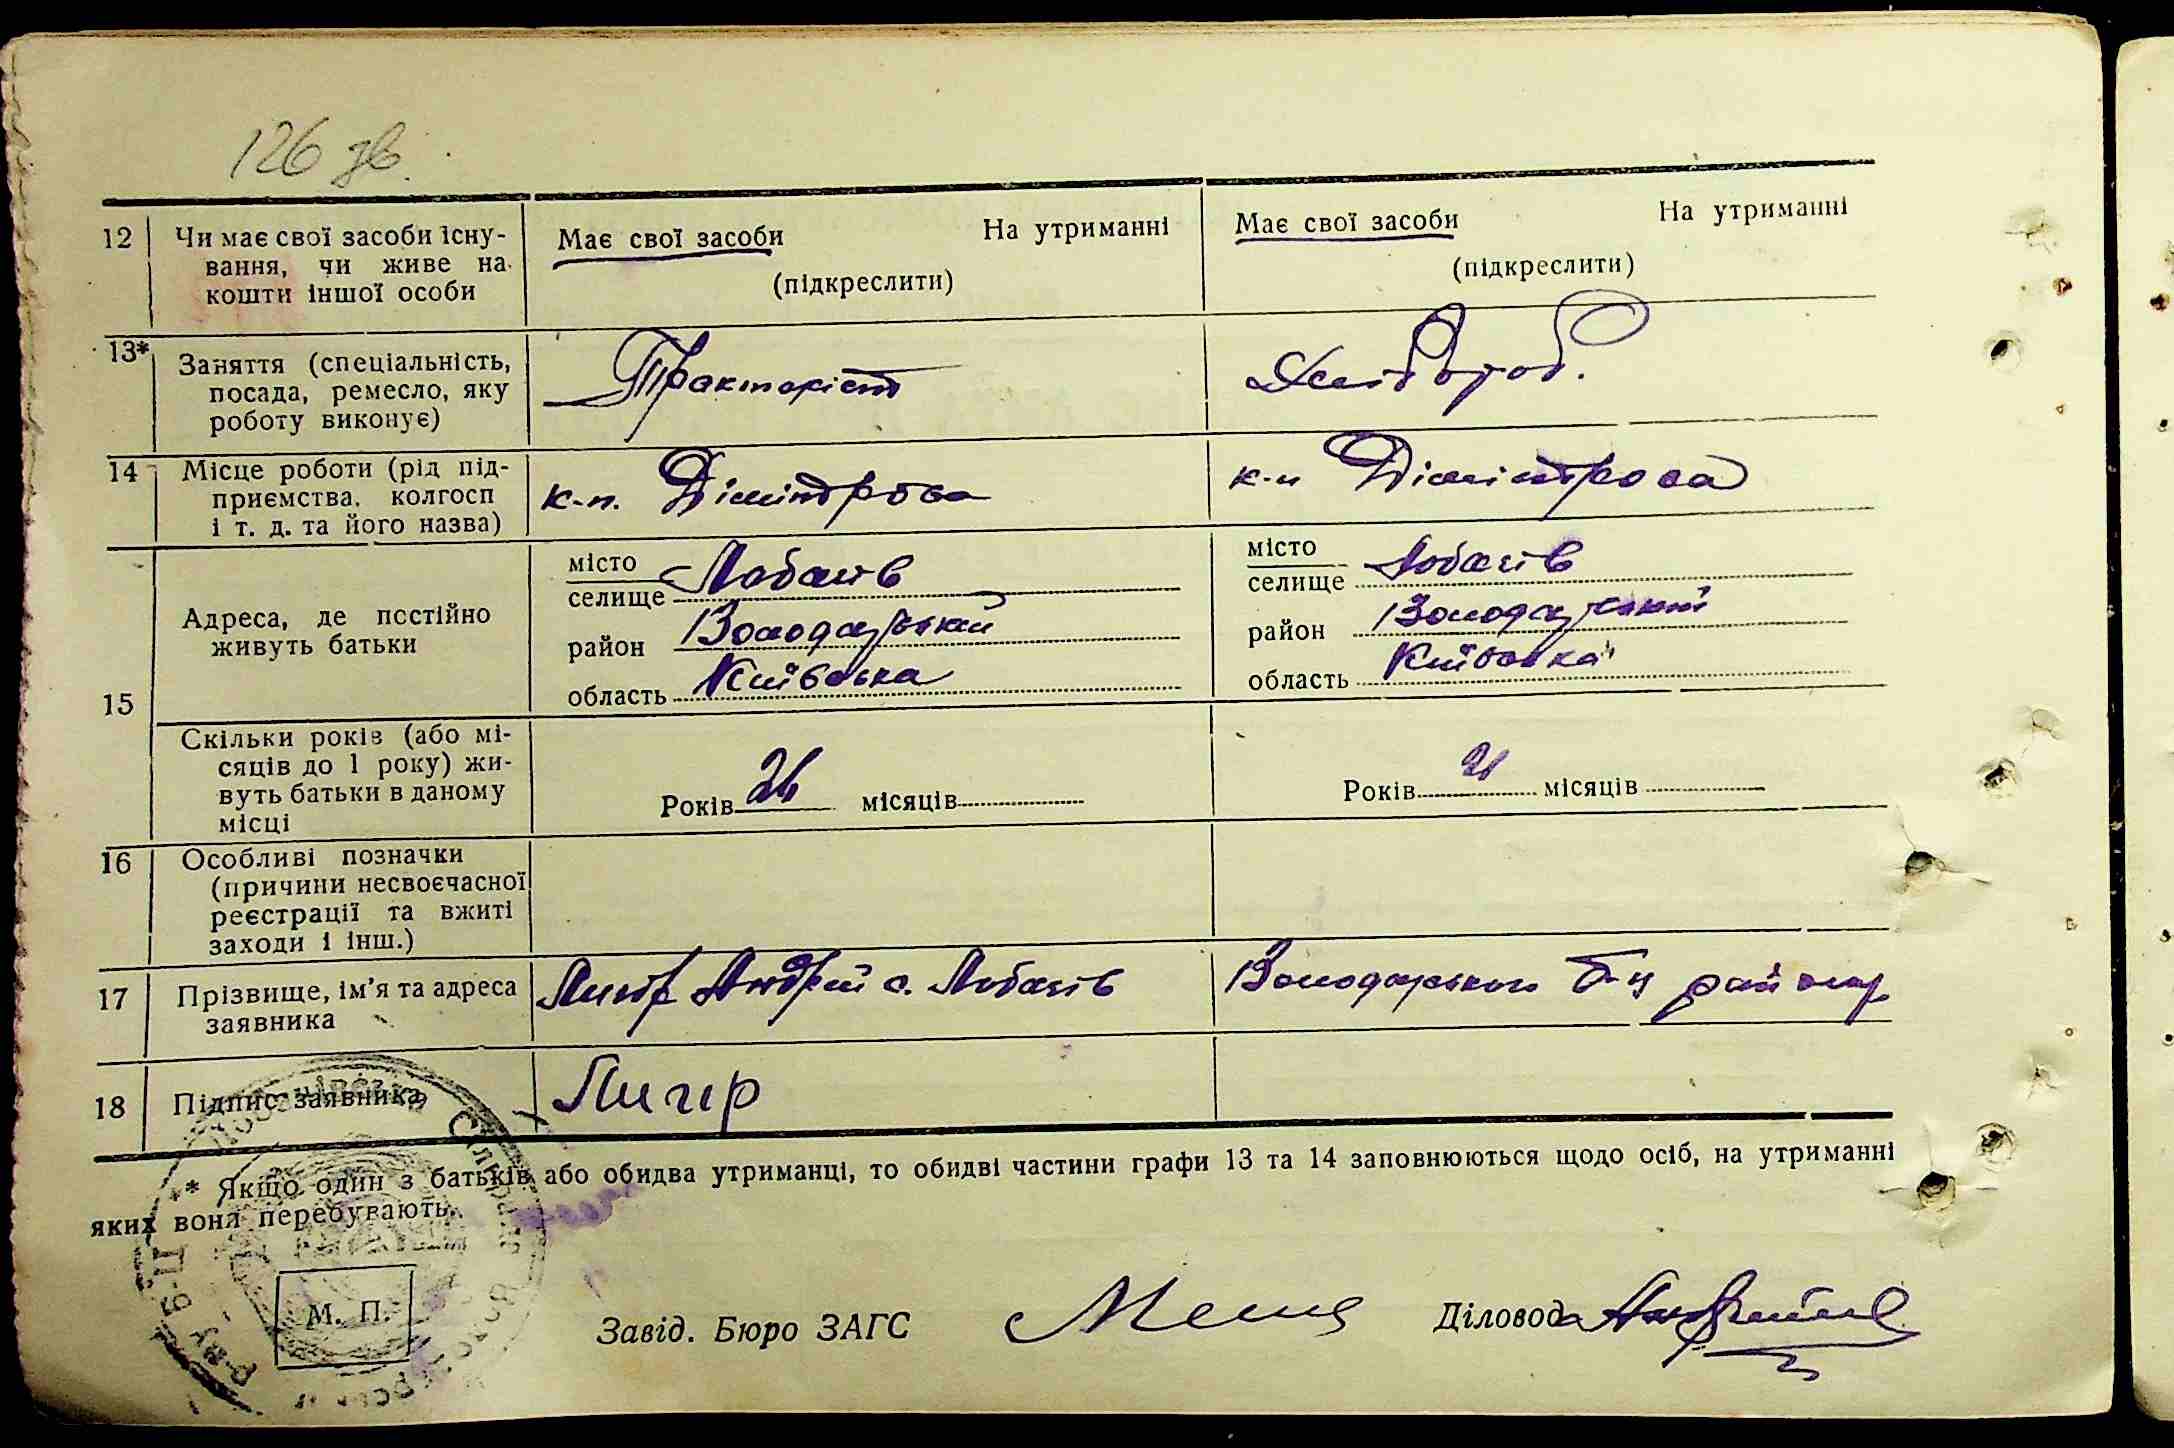 126 зв.
12 Чи має свої засоби існу-
вання, чи живе на
кошти іншої особи
Має свої засоби На утриманні
(підкреслити)
Має свої засоби На утриманні
(підкреслити)
13* Заняття (спеціальність,
посада, ремесло, яку
роботу виконує)
Тракторист
14 Місце роботи (рід під-
приємства, колгосп
і т. д. та його назва)
к-п. Дімітрова
к-п Дімітрова
15 Адреса, де постійно
живуть батьки
місто
селище Лобачів
район Володарський
область Київська
місто
селище Лобачів
район Володарський
область Київська
Скільки років (або мі-
сяців до 1 року) жи-
вуть батьки в даному
місці
Років 26 місяців
Років 21 місяців
16 Особливі позначки
(причини несвоєчасної
реєстрації та вжиті
заходи і інш.)
17 Прізвище, ім'я та адреса
заявника
Андрій с. Лобачів
Володарського Б-Ц
18 Підпис заявника
* Якщо один з батьків або обидва утриманці, то обидві частини графи 13 та 14 заповнюються щодо осіб, на утриманні
яких вони перебувають.
М. П.
Завід. Бюро ЗАГС
Діловод